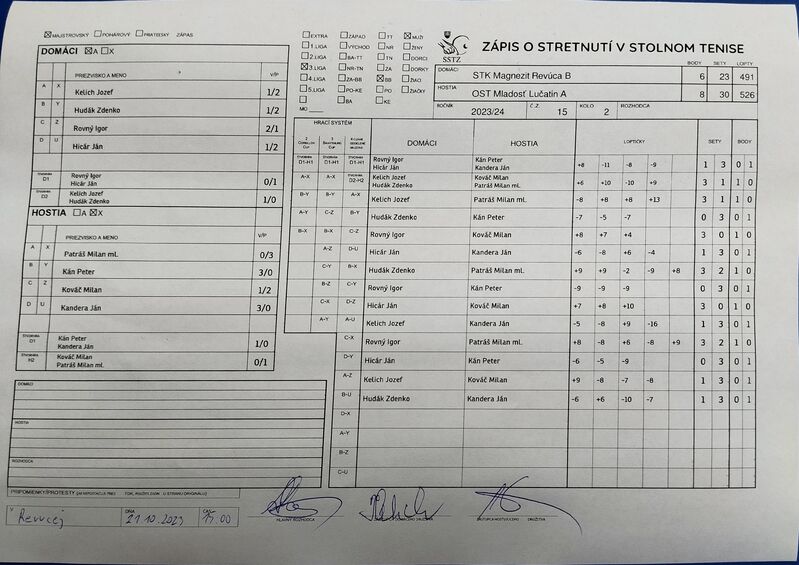 MAJSTROVSKÝ POHÁROVÝ PRIATEĽSKÝ ZÁPAS
DOMÁCI A X
PRIEZVISKO A MENO V/P
A X Kelich Jozef 1/2
B Y Hudák Zdenko 1/2
C Z Rovný Igor 2/1
D U Hicár Ján 1/2
ŠTVORHRA D1 Rovný Igor
Hicár Ján 0/1
ŠTVORHRA D2 Kelich Jozef
Hudák Zdenko 1/0
HOSTIA A X
PRIEZVISKO A MENO V/P
A X Patráš Milan ml. 0/3
B Y Kán Peter 3/0
C Z Kováč Milan 1/2
D U Kandera Ján 3/0
ŠTVORHRA D1 Kán Peter
Kandera Ján 1/0
ŠTVORHRA H2 Kováč Milan
Patráš Milan ml. 0/1
DOMÁCI
HOSTIA
ROZHODCA
PRIPOMIENKY/PROTESTY
V Revúcej DŇA 21.10.2023 ČAS
EXTRA ZÁPAD TT MUŽI
1.LIGA VÝCHOD NR ŽENY
2.LIGA BA-TT TN DORCI
3.LIGA NR-TN ZA DORKY
4.LIGA ZA-BB BB ŽIACI
5.LIGA PO-KE PO ŽIAČKY
BA KE
MO
SSTZ
ZÁPIS O STRETNUTÍ V STOLNOM TENISE
BODY SETY LOPTY
DOMÁCI STK Magnezit Revúca B 6 23 491
HOSTIA OST Mladosť Lučatín A 8 30 526
ROČNÍK 2023/24 Č.Z. 15 KOLO 2 ROZHODCA
HRACÍ SYSTÉM DOMÁCI HOSTIA LOPTIČKY SETY BODY
ŠTVORHRA D1-H1 ŠTVORHRA D1-H1 ŠTVORHRA D1-H1 Rovný Igor Kán Peter
Hicár Ján Kandera Ján +8 -11 -8 -9 1 3 0 1
A-X A-X ŠTVORHRA D2-H2 Kelich Jozef Kováč Milan
Hudák Zdenko Patráš Milan ml. +6 +10 -10 +9 3 1 1 0
B-Y B-Y A-X Kelich Jozef Patráš Milan ml. -8 +8 +8 +13 3 1 1 0
A-Y C-Z B-Y Hudák Zdenko Kán Peter -7 -5 -7 0 3 0 1
B-X B-X C-Z Rovný Igor Kováč Milan +8 +7 +4 3 0 1 0
A-Z D-U Hicár Ján Kandera Ján -6 -8 +6 -4 1 3 0 1
C-Y B-X Hudák Zdenko Patráš Milan ml. +9 +9 -2 -9 +8 3 2 1 0
B-Z C-Y Rovný Igor Kán Peter -9 -9 -9 0 3 0 1
C-X D-Z Hicár Ján Kováč Milan +7 +8 +10 3 0 1 0
A-Y A-U Kelich Jozef Kandera Ján -5 -8 +9 -16 1 3 0 1
C-X Rovný Igor Patráš Milan ml. +8 -8 +6 -8 +9 3 2 1 0
D-Y Hicár Ján Kán Peter -6 -5 -9 0 3 0 1
A-Z Kelich Jozef Kováč Milan +9 -8 -7 -8 1 3 0 1
B-U Hudák Zdenko Kandera Ján -6 +6 -10 -7 1 3 0 1
D-X
A-Y
B-Z
C-U
HLAVNÝ ROZHODCA